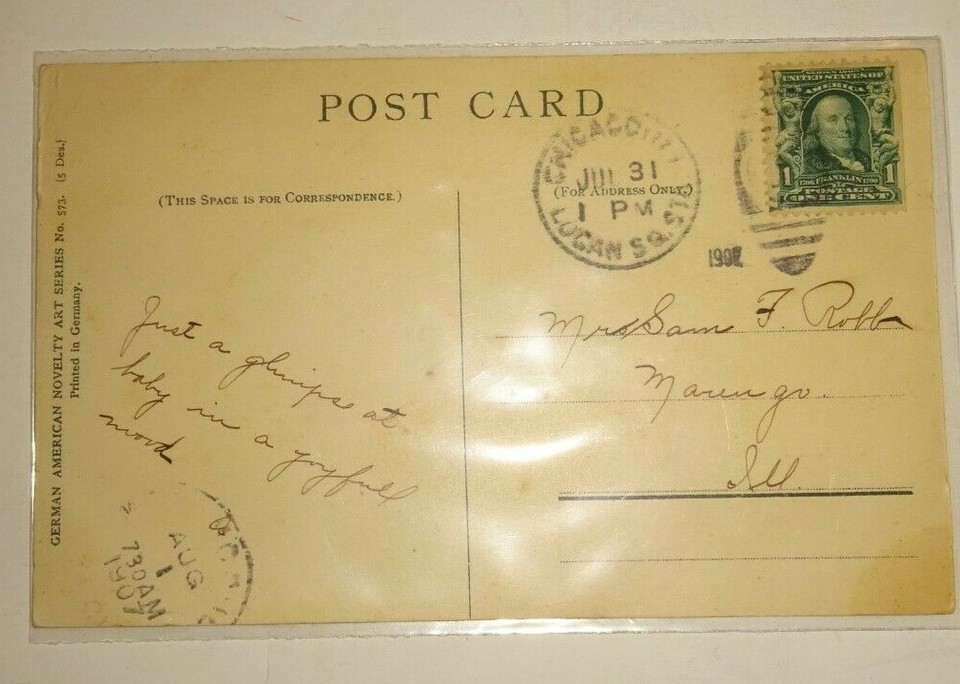 POST CARD
(THIS SPACE IS FOR CORRESPONDENCE.)
(FOR ADDRESS ONLY.)
CHICAGO, ILL.
JUL 31
1 PM
LOGAN SQ. ST
1907
SERIES 1902
UNITED STATES OF
AMERICA
1 1
1706 FRANKLIN 1790
POSTAGE
ONE CENT
GERMAN AMERICAN NOVELTY ART SERIES No. 573. (5 Des.)
Printed in Germany.
Just a glimpse at
baby in a joyfull
mood
Mrs Sam F. Robb
Marengo.
Ill.
AUG
1
730AM
1907